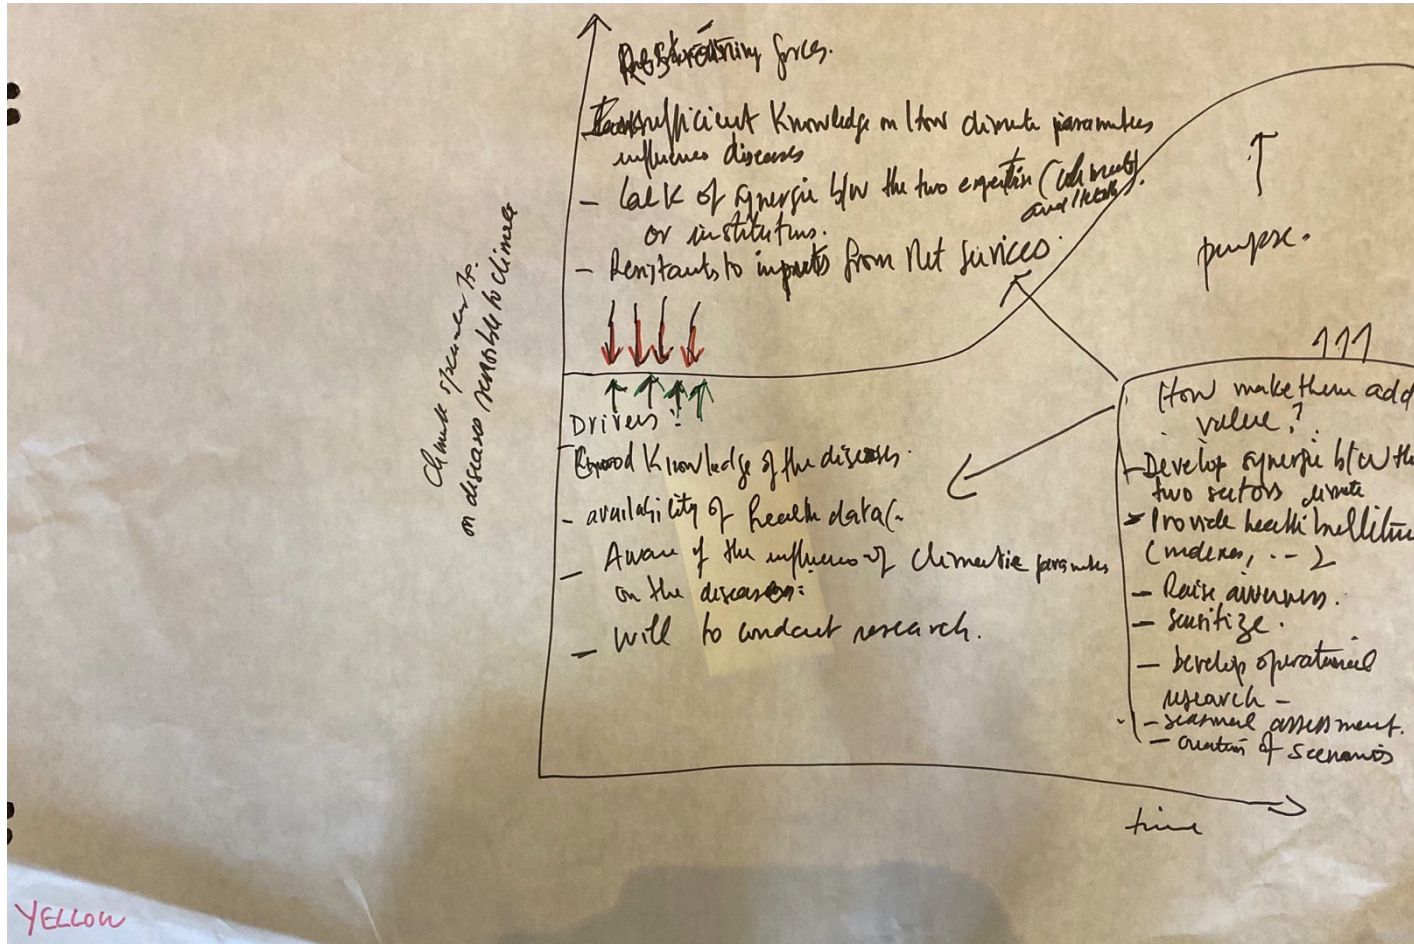 Restraining forces.
Insufficient Knowledge on How climate parameters
influence diseases
- Lack of synergie b/w the two expertise (climate
and Health).
or institutions.
- Resistants to inputs from Met Services.
purpose.
Climate
on diseases sensible to climate
Drivers :
Good Knowledge of the diseases.
- availability of health data(.
- Aware of the influence of climatic parameters
on the diseases:
- Will to conduct research.
How make them add
value ?
- Develop synergie b/w the
two sectors climate
- Provide health
(indexes, ...)
- Raise awareness.
- Sensitize.
- Develop operational
research -
- Seasonal assessment.
- Creation of scenarios
time
YELLOW